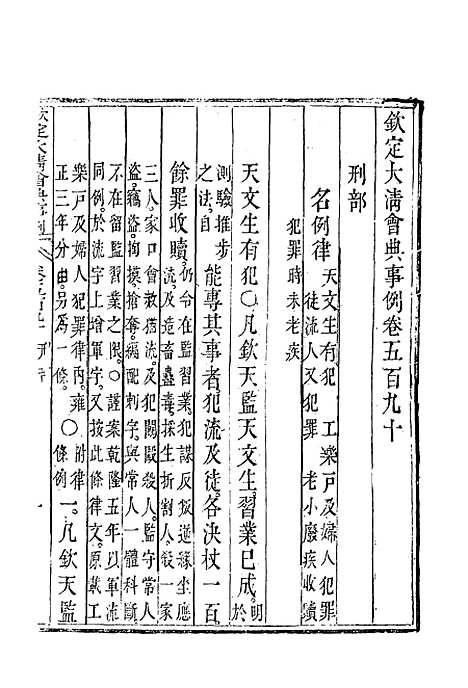 欽定大淸會典事例卷五百九十
刑部
名例律 天文生有犯 工樂戸及婦人犯罪
徒流人又犯罪 老小廢疾收贖
犯罪時未老疾
天文生有犯〇凡欽天監天文生習業已成明於
測驗推步之法自能專其事者犯流及徒各決杖一百
餘罪收贖仍令在監習業犯謀反叛逆緣坐應流及造畜蠱毒採生折割人殺一家
三人家口會赦猶流及犯鬬毆殺人監守常人
盜竊盜掏摸搶奪編配刺字與常人一體科斷
不在留監習業之限〇謹案乾隆五年以軍流
同例於流字上增軍字又按此條律文原載工
樂戸及婦人犯罪律內雍正三年分出另爲一條〇附律條例一凡欽天監